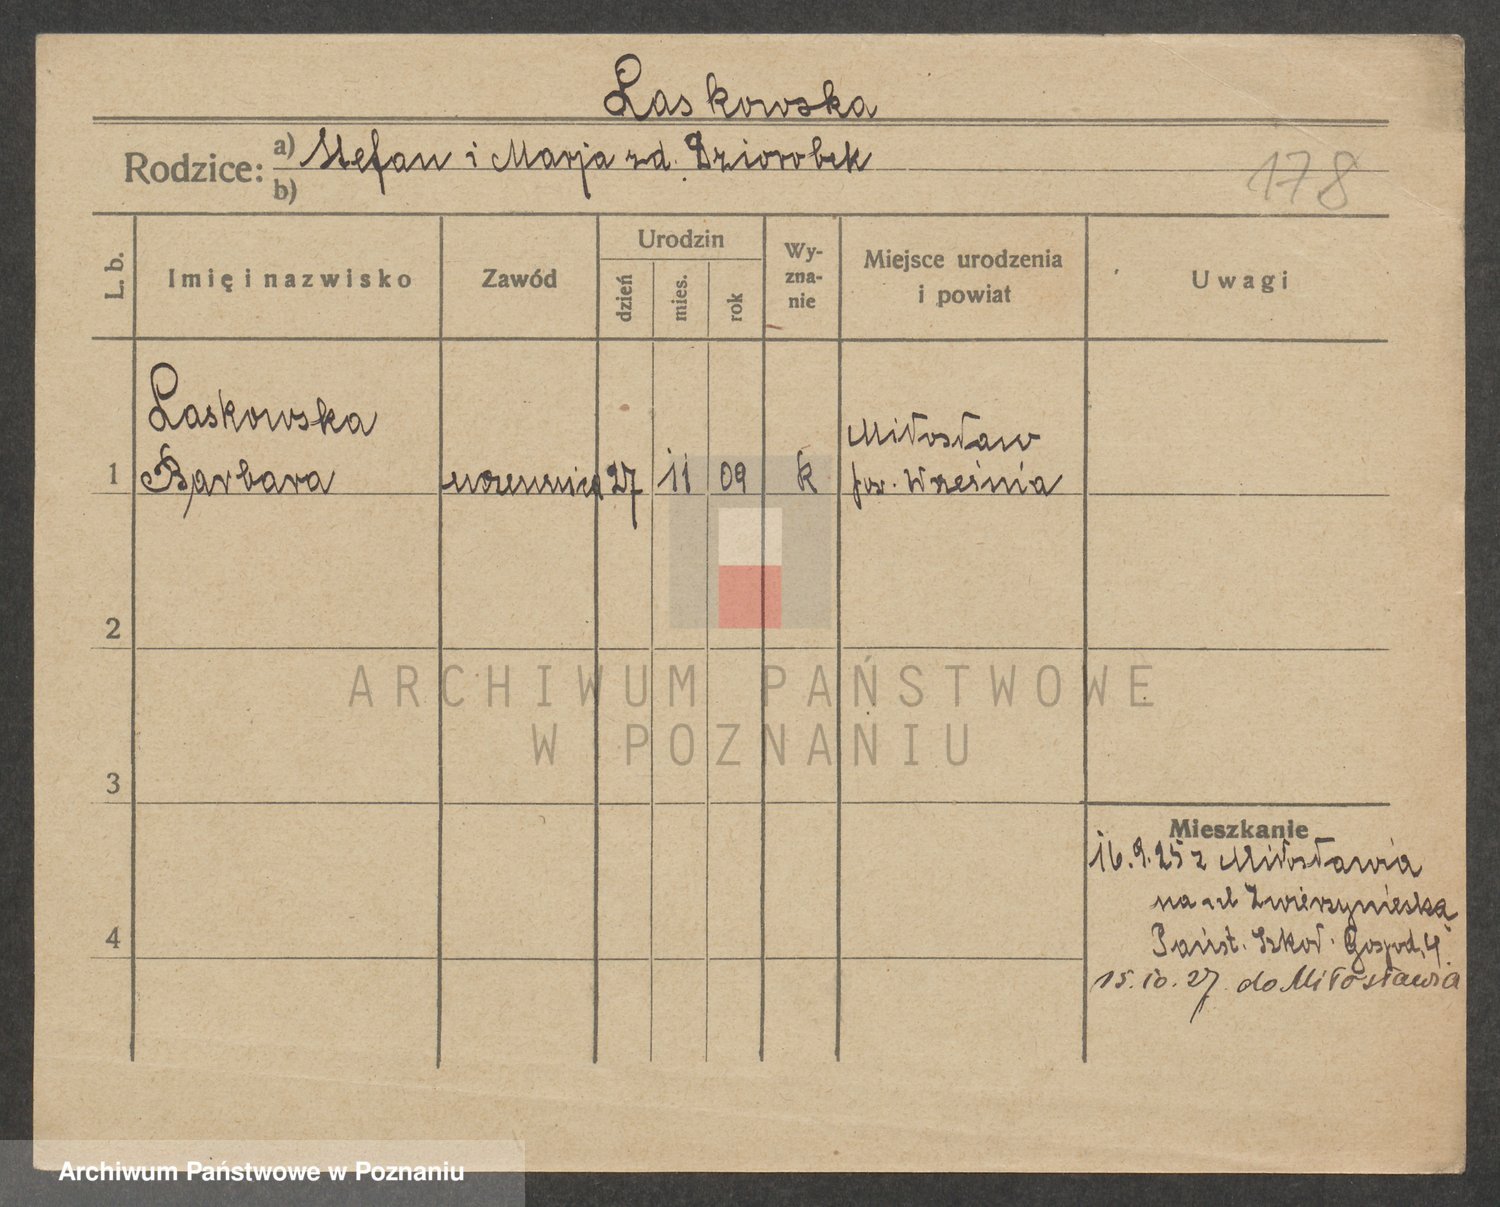 Laskowska
Rodzice: a) Stefan i Marja zd. Dziorobek
b)
178
L. b.
Imię i nazwisko
Zawód
Urodzin
dzień
mies.
rok
Wy-
zna-
nie
Miejsce urodzenia
i powiat
Uwagi
Laskowska
Miłosław
1 Barbara uczennica 27 11 09 k pow. Września
2
3
4
Mieszkanie
16.9.25 z Miłosławia
na ul Zwierzyniecką
Państ. Szkoł. Gospod. 4.
15.10.27 do Miłosławia
ARCHIWUM PAŃSTWOWE
W POZNANIU
Archiwum Państwowe w Poznaniu